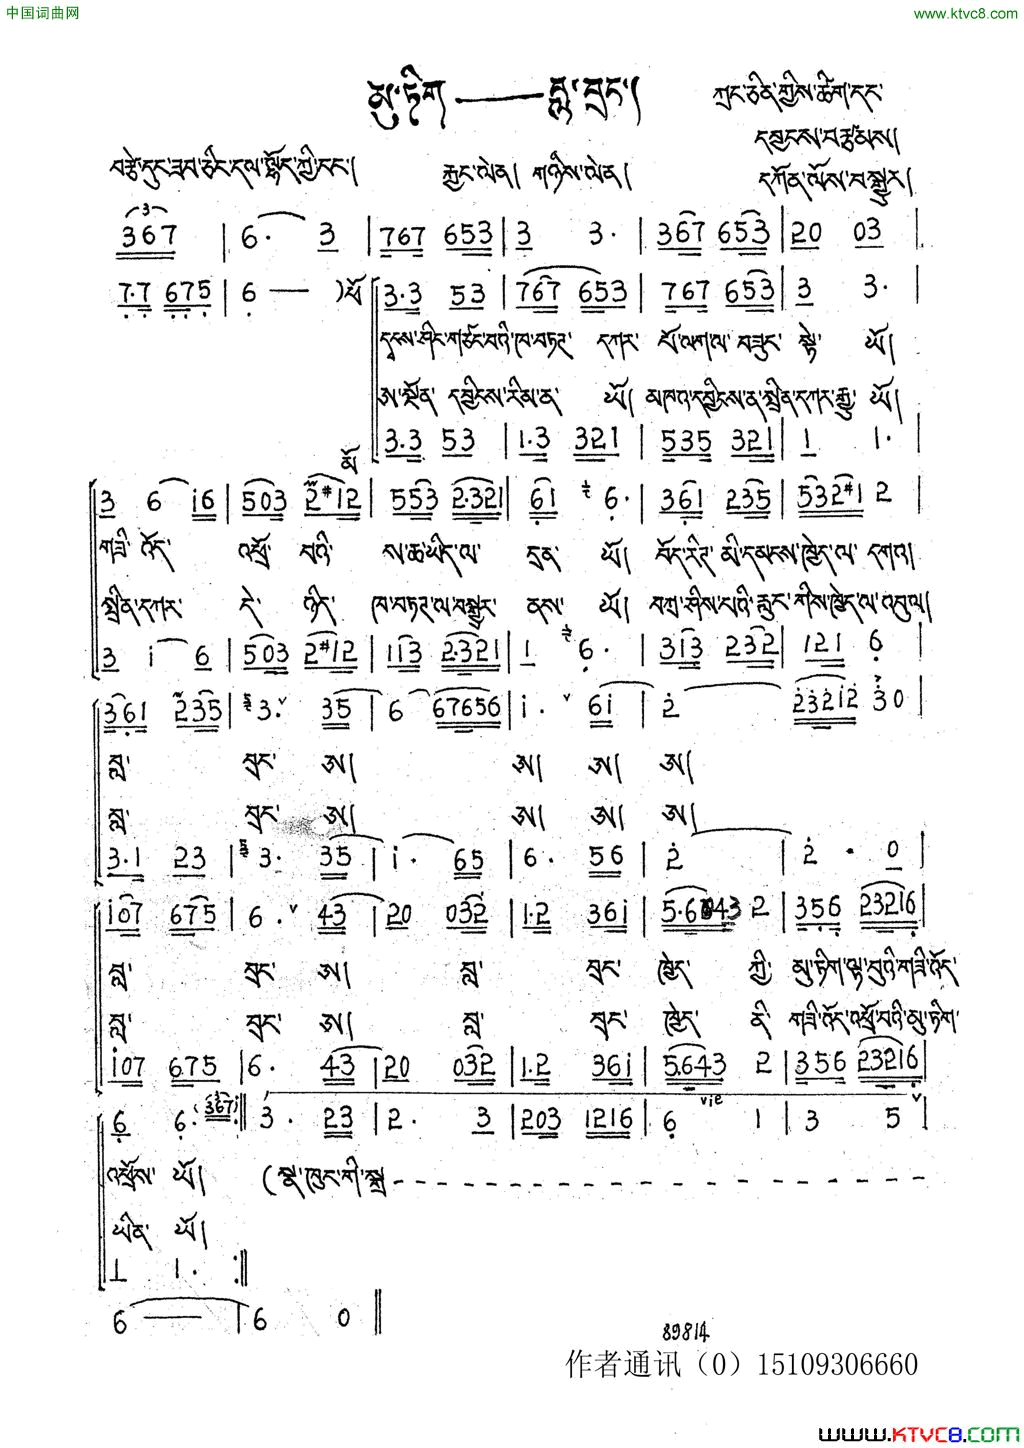 中国词曲网 www.ktvc8.com
མུ་ཏིག — བླ་བྲང་། ཀྲང་ཅིན་གྱིས་ཚིག་དང་
དབྱངས་བརྩམས།
བརྩེ་དུང་ཟབ་ཅིང་དལ་ལྷོད་ཀྱི་ངང་། རྐྱང་ལེན། གཉིས་ལེན། དཀོན་ལོས་བསྒྱུར།
367 | 6· 3 | 767 653 | 3 3· | 367 653 | 20 03 |
7·7 675 | 6 — ) ཕོ 3·3 53 | 767 653 | 767 653 | 3 3· |
དྭངས་ཤིང་གཙང་བའི་ཁ་བཏང་ དཀར་ པོ་ལག་ལ་ བཟུང་ སྟེ་ ཡོ།
ཨ་སྔོན་ དབྱིངས་རིམ་ན་ ཡོ། མཁའ་དབྱིངས་ན་སྤྲིན་དཀར་རྒྱུ་ ཡོ།
མོ 3·3 53 | 1·3 321 | 535 321 | 1 1· |
3 6 i6 | 503 2#12 | 553 2·321 | 61 6· | 361 235 | 532#1 2 |
གཟི་ འོད་ འཕྲོ་ བའི་ ས་ཆ་ཡིད་ལ་ དྲན་ ཡོ། བོད་རིཊ་ མི་དམངས་ཁྱེད་ལ་ དགའ།
སྤྲིན་དཀར་ དེ་ ཉིད་ ཁ་བཏང་ལ་བསྒྱུར་ ནས་ ཡོ། བཀྲ་ཤིས་པའི་རླུང་གིས་ཁྱེད་ལ་འབུལ།
3 i 6 | 503 2#12 | 113 2·321 | 1 6· | 313 232 | 121 6
361 235 | 3· 35 | 6 67656 | i· 6i | 2 23212 30 |
བླ་ བྲང་ ཨ། ཨ། ཨ། ཨ།
བླ་ བྲང་ ཨ། ཨ། ཨ། ཨ།
3·1 23 | 3· 35 | i· 65 | 6· 56 | 2 | 2· 0 |
i07 675 | 6· 43 | 20 032 | 1·2 36i | 5·6 43 2 | 356 23216 |
བླ་ བྲང་ ཨ། བླ་ བྲང་ ཁྱེད་ ཀྱི་ མུ་ཏིག་ལྟ་བུའི་གཟི་འོད་
བླ་ བྲང་ ཨ། བླ་ བྲང་ ཁྱེད་ ནི་ གཟི་འོད་འཕྲོ་བའི་མུ་ཏིག་
i07 675 | 6· 43 | 20 032 | 1·2 36i | 5·643 2 | 356 23216 |
6 6· 367i :‖ 3· 23 | 2· 3 | 203 1216 | 6 vie 1 | 3 5 |
འཕྲོས་ ཡོ། (སྣ་ཁུང་གི་སྒྲ - - - - - - - - - - - - - -
ཡིན་ ཡོ།
1 1· :‖
6 — | 6 0 ‖
89814
作者通讯（0）15109306660
www.KTVC8.com